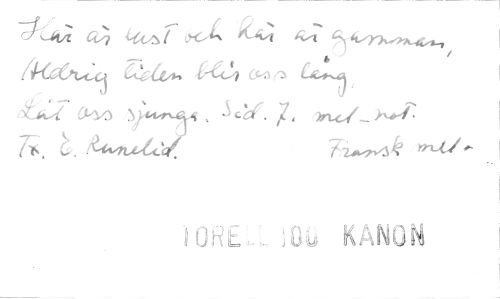 Här är lust och här är gamman,
Aldrig tiden blir oss lång,
Låt oss sjunga. Sid. 7. mel-not.
Tx. E. Runelid. Fransk mel-
TORELL 100 KANON